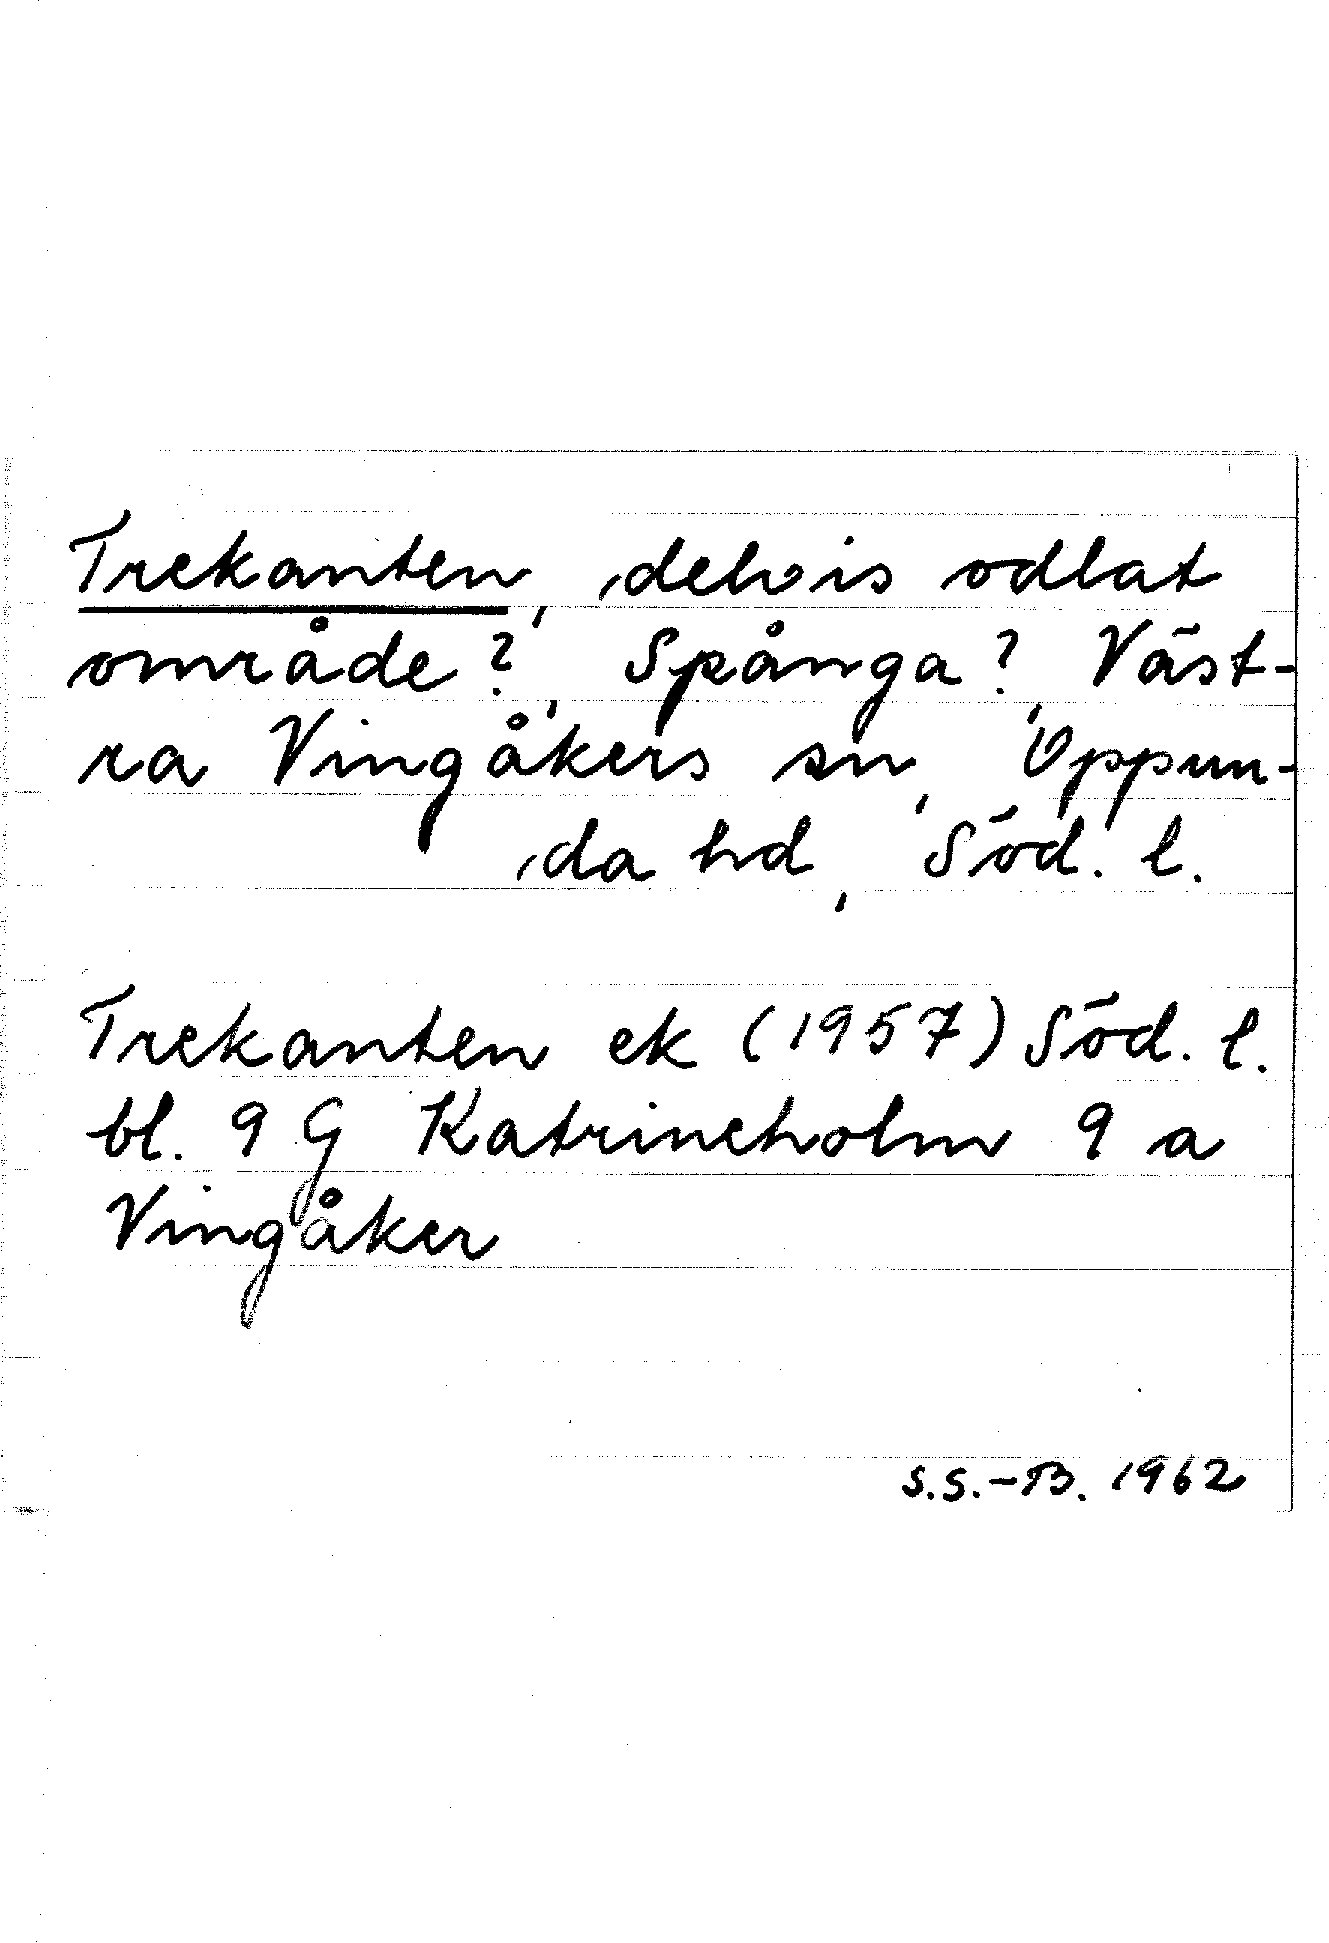 Trekanten, delvis odlat
område?, Spånga?, Väst-
ra Vingåkers sn, Oppun-
da hd, Söd. l.
Trekanten ek (1957) Söd. l.
bl. 9 G Katrineholm 9 a
Vingåker
S.S.-B. 1962